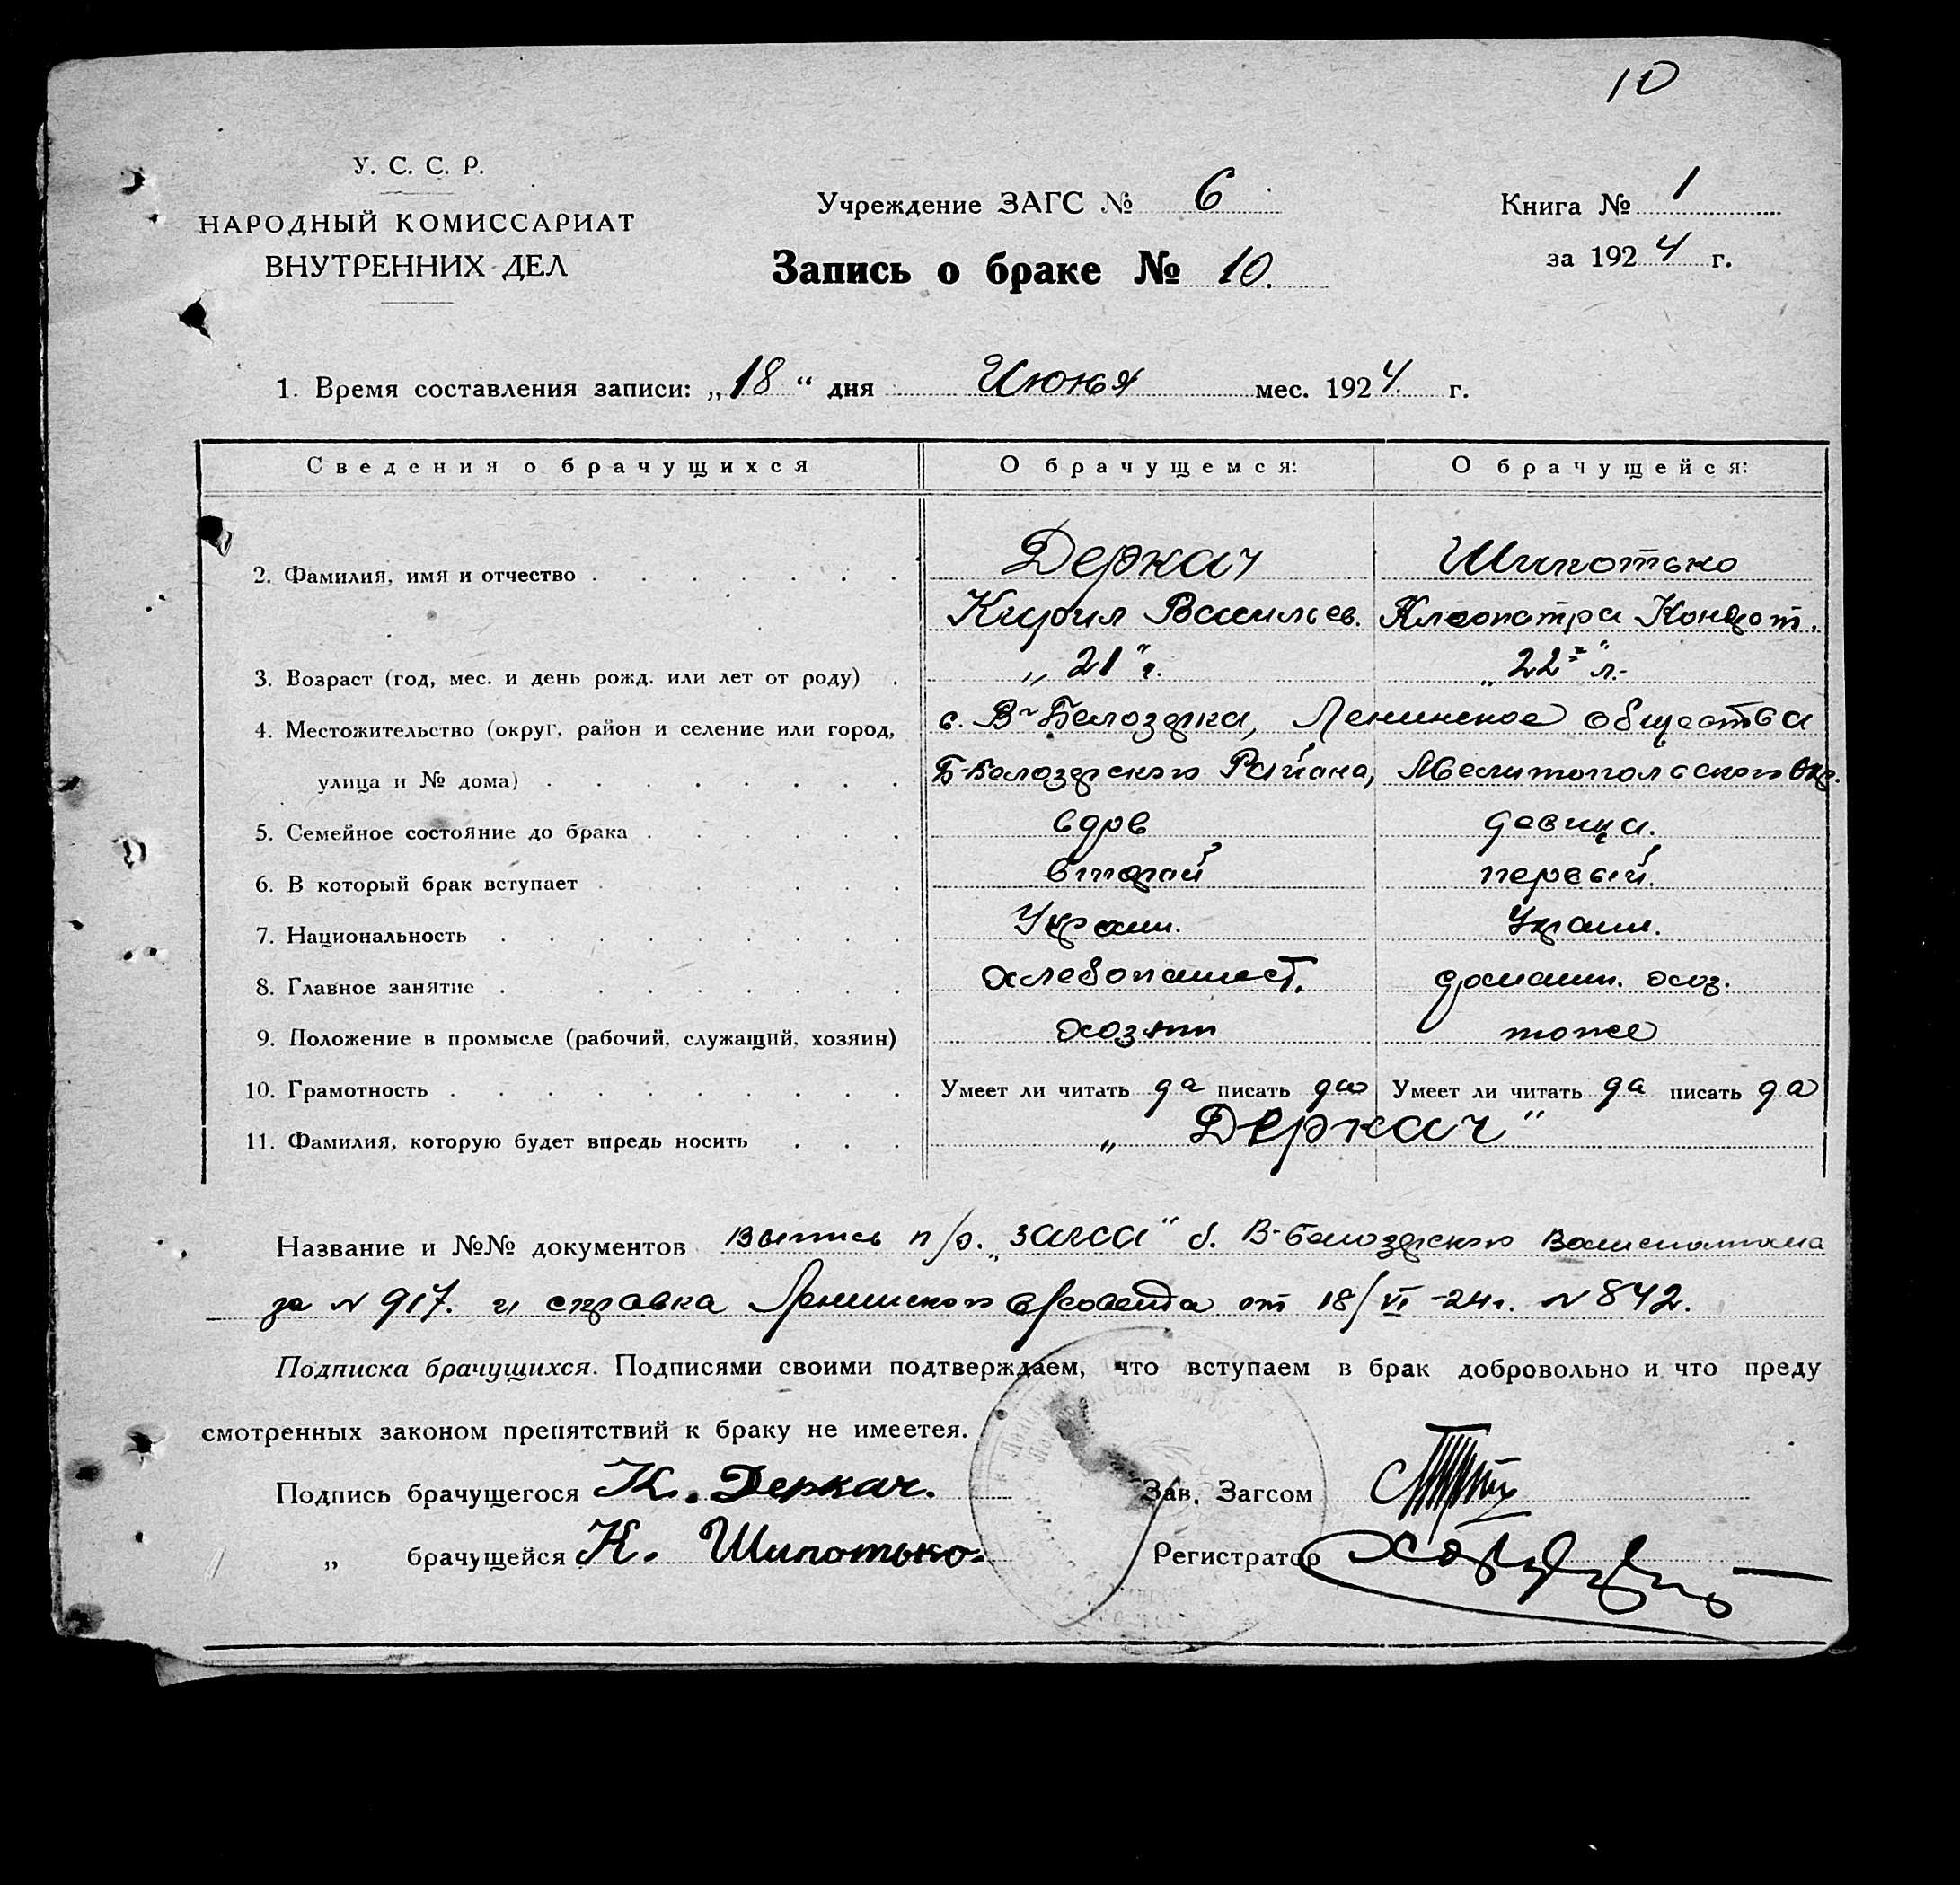 10
У. С. С. Р.
НАРОДНЫЙ КОМИССАРИАТ
ВНУТРЕННИХ ДЕЛ
Учреждение ЗАГС № 6
Книга № 1
Запись о браке № 10.
за 1924 г.
1. Время составления записи: „18“ дня Июня мес. 1924. г.
Сведения о брачущихся О брачущемся: О брачущейся:
2. Фамилия, имя и отчество Деркач Шипотько
Кирил Васильев. Клеопатра Кондрат.
3. Возраст (год, мес. и день рожд. или лет от роду) „21" г. „22" л.
4. Местожительство (округ, район и селение или город, с. В-Белозерка, Ленинское общества
улица и № дома) Б-Белозерского Района, Мелитопольского Окр.
5. Семейное состояние до брака вдов девица.
6. В который брак вступает второй первый.
7. Национальность Украин. Украин.
8. Главное занятие хлебопашест. домашн. хоз.
9. Положение в промысле (рабочий, служащий, хозяин) хозяин тоже
10. Грамотность Умеет ли читать да писать да Умеет ли читать да писать да
11. Фамилия, которую будет впредь носить „Деркач"
Название и №№ документов Выпись п/о. „загса" б. В-Белозерского Волисполкома
за № 917. и справка Ленинского с/совета от 18/VI-24 г. № 842.
Подписка брачущихся. Подписями своими подтверждаем, что вступаем в брак добровольно и что преду
смотренных законом препятствий к браку не имеется.
Подпись брачущегося К. Деркач.
Зав. Загсом
„ брачущейся К. Шипотько.
Регистратор